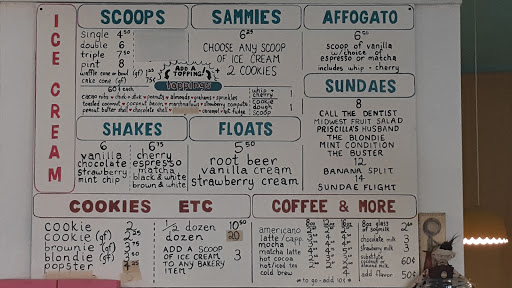 ICE CREAM
SCOOPS
single 4.50
double 6
triple 7.50
pint 8
waffle cone or bowl (gf) 1.25
cake cone (gf) 75¢
ADD A TOPPING!
toppings
60¢ each
cacao nibs • chock • slice • peanuts • almonds • grahams • sprinkles
toasted coconut • coconut bacon • marshmallow • strawberry compote
peanut butter shell • chocolate shell • caramel • hot fudge
whip + cherry
cookie dough scoop 1
SAMMIES
6.25
CHOOSE ANY SCOOP
OF ICE CREAM
+ 2 COOKIES
AFFOGATO
6.50
scoop of vanilla
w/choice of
espresso or matcha
includes whip + cherry
SUNDAES
8
CALL THE DENTIST
MIDWEST FRUIT SALAD
PRISCILLA'S HUSBAND
THE BLONDIE
MINT CONDITION
THE BUSTER
12
BANANA SPLIT
14
SUNDAE FLIGHT
SHAKES
6
vanilla
chocolate
strawberry
mint chip
6.75
cherry
espresso
matcha
black & white
brown & white
FLOATS
5.50
root beer
vanilla cream
strawberry cream
COOKIES ETC
cookie 2
cookie (gf)
brownie (gf) 3
blondie (gf)
popster 3.25
1/2 dozen 10.50
dozen 20
ADD A SCOOP
OF ICE CREAM
TO ANY BAKERY
ITEM 3
COFFEE & MORE
americano
latte/capp.
mocha
matcha latte
hot cocoa
hot/iced tea
cold brew
• to go - add 10¢ •
8oz glass of oatmilk 2.60
chocolate milk 3
strawberry milk 3
substitute coconut or almond milk 60¢
add flavor 50¢